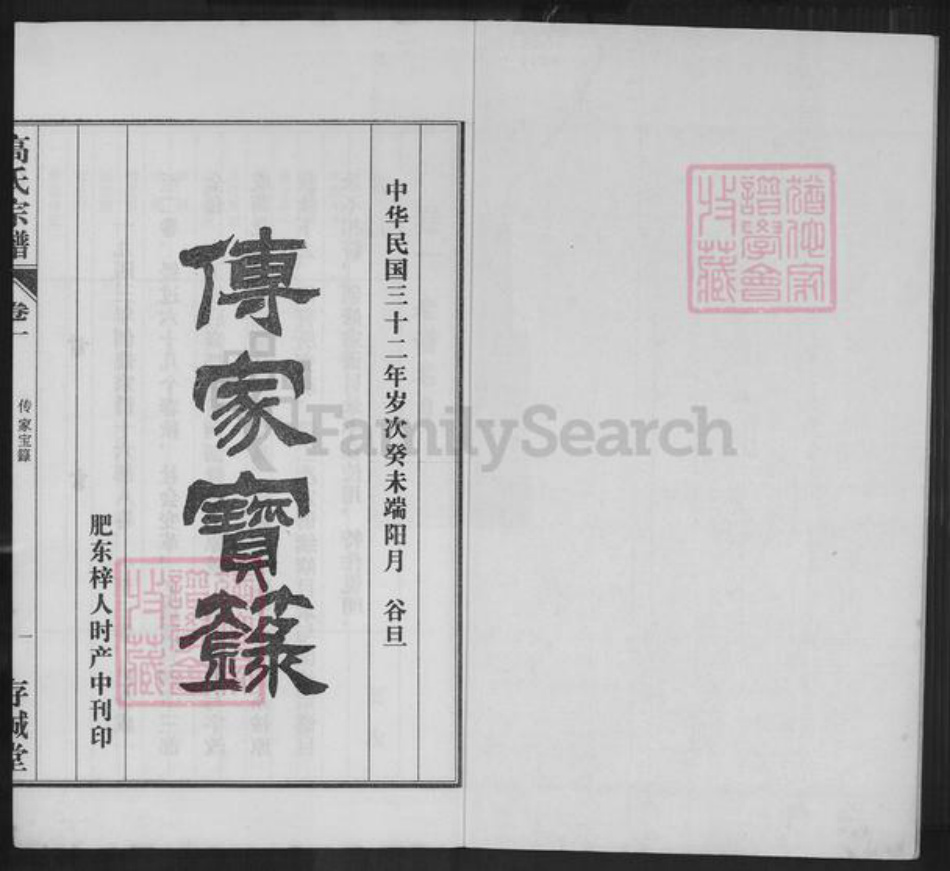 中华民国三十二年岁次癸未端阳月 谷旦
傳家寶籙
肥东梓人时产中刊印
高氏宗譜
卷一
传家宝籙
一
存诚堂
譜學會
收藏
FamilySearch